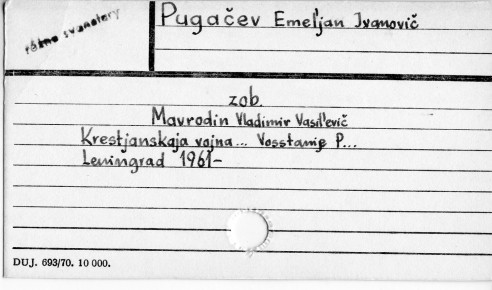 Pugačev Emeljan Ivanovič
różne sygnatury
zob.
Mavrodin Vladimir Vasil'evič
Krestjanskaja vojna... Vosstanie P...
Leningrad 1961-
DUJ. 693/70. 10 000.